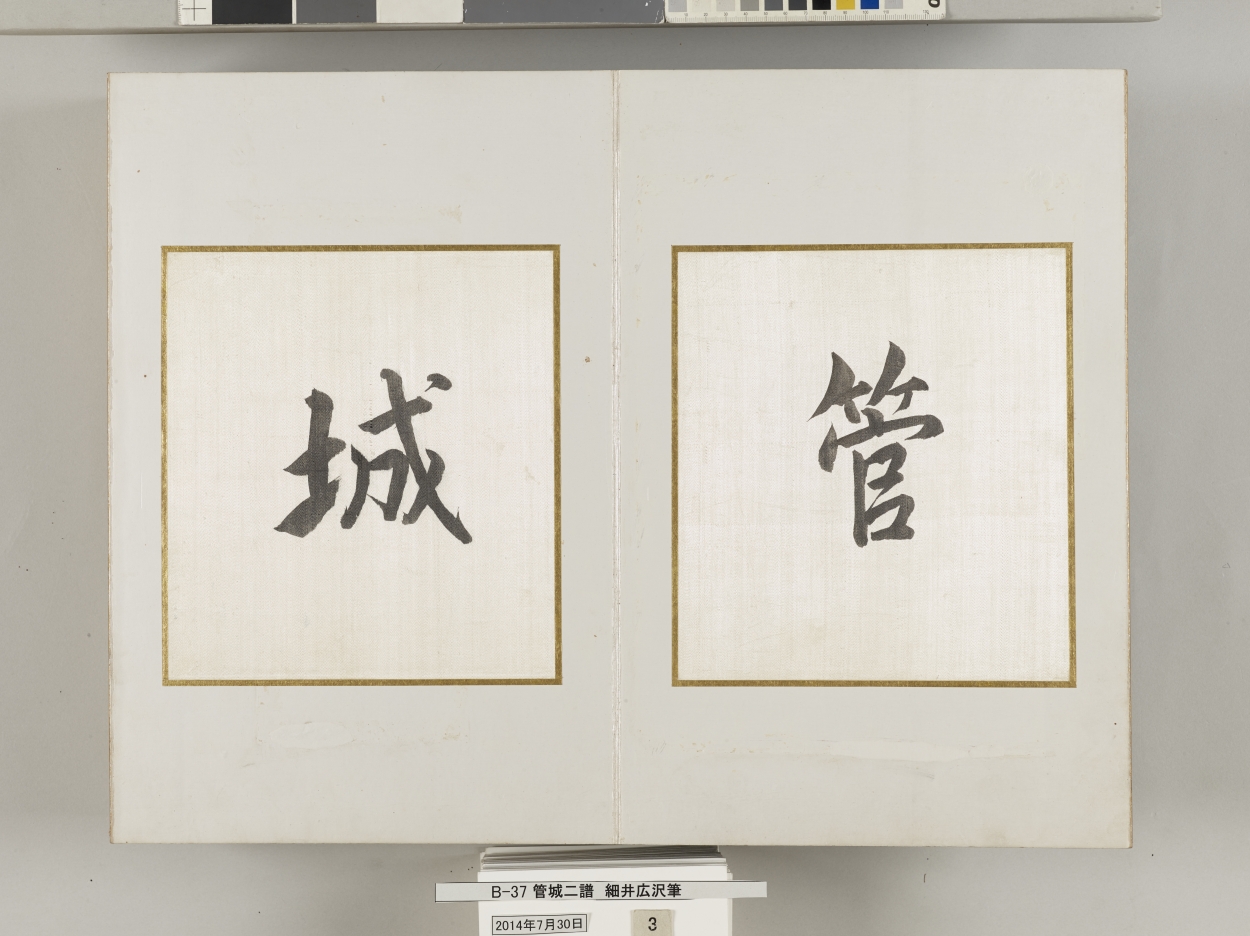 管
城
B-37 管城二譜 細井広沢筆
2014年7月30日
3